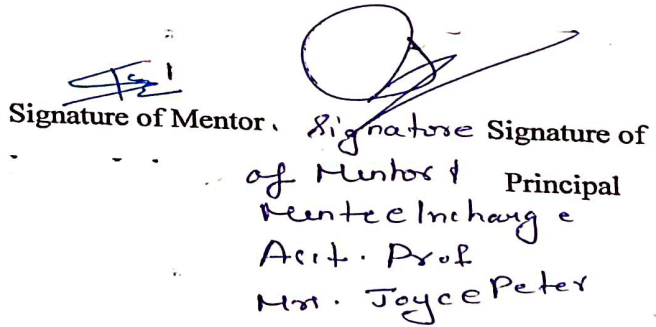 Signature of Mentor. Signature Signature of
of Mentor & Principal
Mentee Incharge
Asst. Prof
Mrs. Joyce Peter